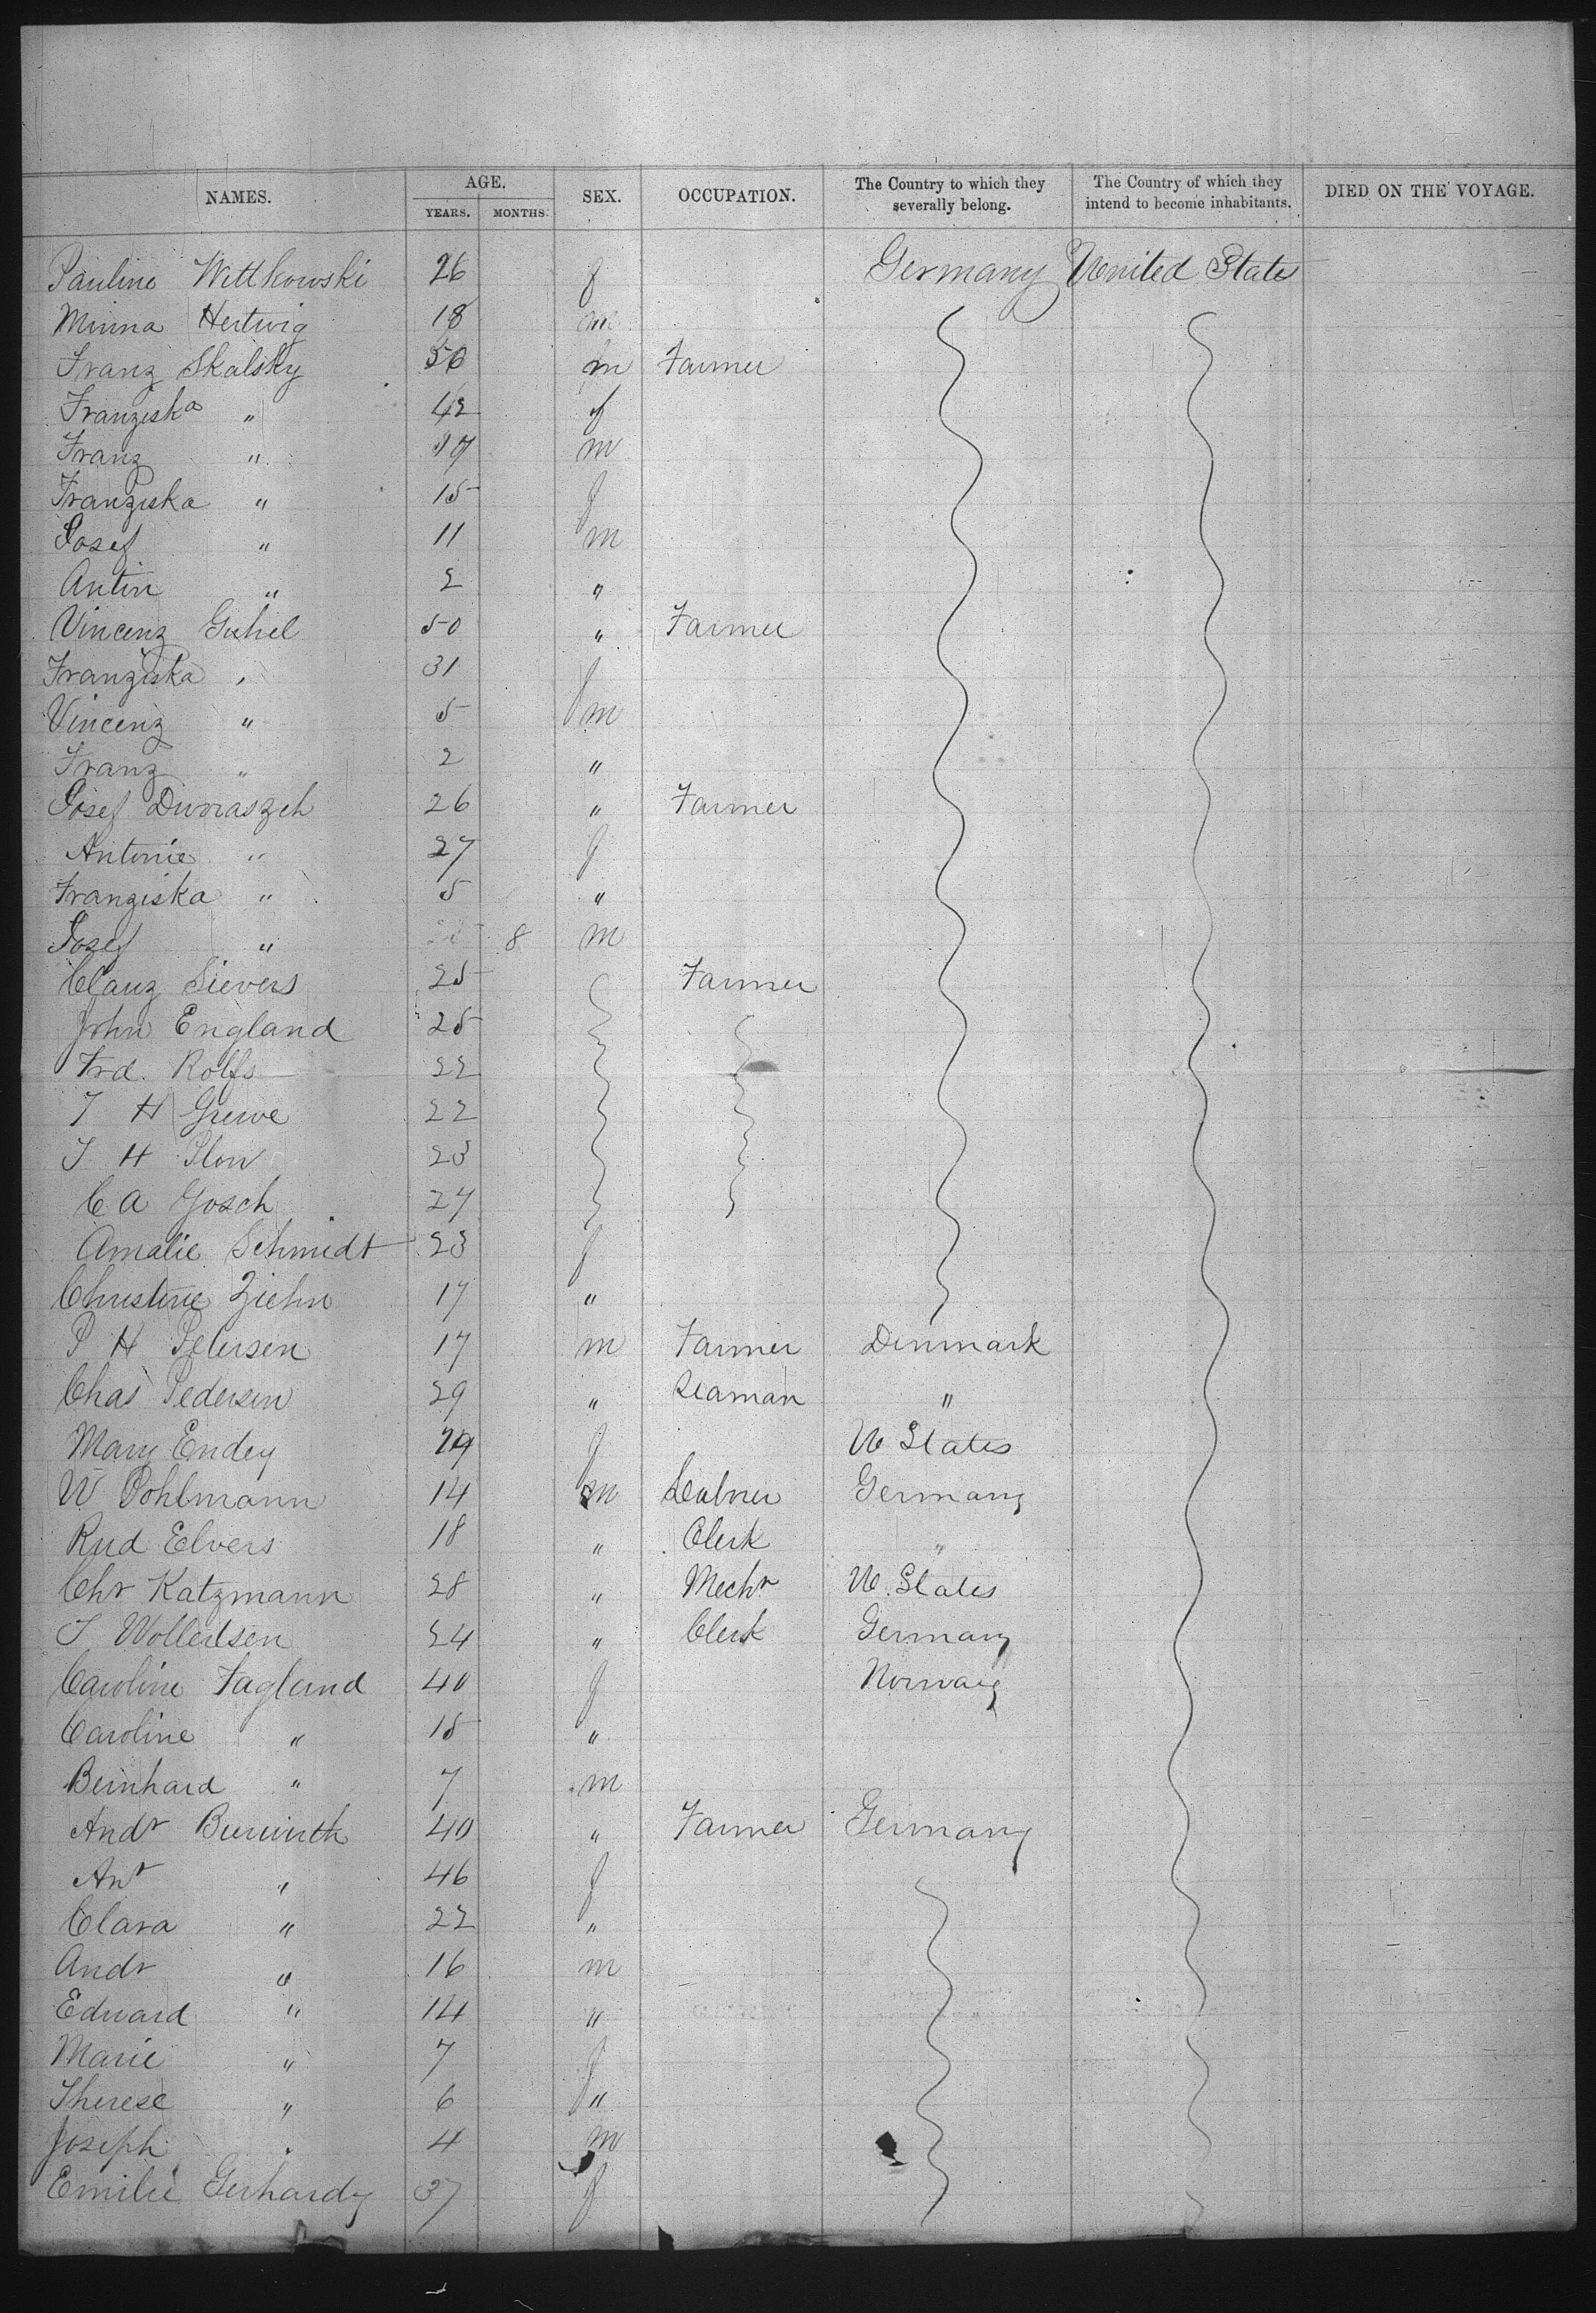 NAMES. AGE. SEX. OCCUPATION. The Country to which they severally belong. The Country of which they intend to become inhabitants. DIED ON THE VOYAGE.
YEARS. MONTHS.
Pauline Wittkowski 26 f Germany United States
Minna Hertwig 18 m
Franz Skalsky 50 m Farmer
Franziska " 42 f
Franz " 19 m
Franziska " 15 f
Josef " 11 m
Antin " 2 "
Vincenz Guhel 50 " Farmer
Franziska " 31 f
Vincenz " 5 m
Franz " 2 "
Josef Dworaszeh 26 " Farmer
Antonie " 27 f
Franziska " 5 "
Josef " 8 m
Clauz Sievers 25 Farmer
John England 25
Frd. Rolfs 22
J H Grewe 22
J H Ilow 23
C A Gosch 27
Amalie Schmidt 23 f
Christine Ziehn 17 "
P H Petersen 17 m Farmer Denmark
Chas Pedersen 29 " Seaman "
Mary Endey f U States
W Pohlmann 14 m Labrer Germany
Rud Elvers 18 " Clerk "
Chr Katzmann 28 " Mechr U. States
J Wollertsen 24 " Clerk Germany
Caroline Fagland 40 f Norway
Caroline " 15 "
Bernhard " 7 m
Andr 40 " Farmer Germany
Ant " 46 f
Clara " 22 "
Andr " 16 m
Edward " 14 "
Marie " 7 f
Therese " 6 "
Joseph " 4 m
Emilie Gerhardy 37 f